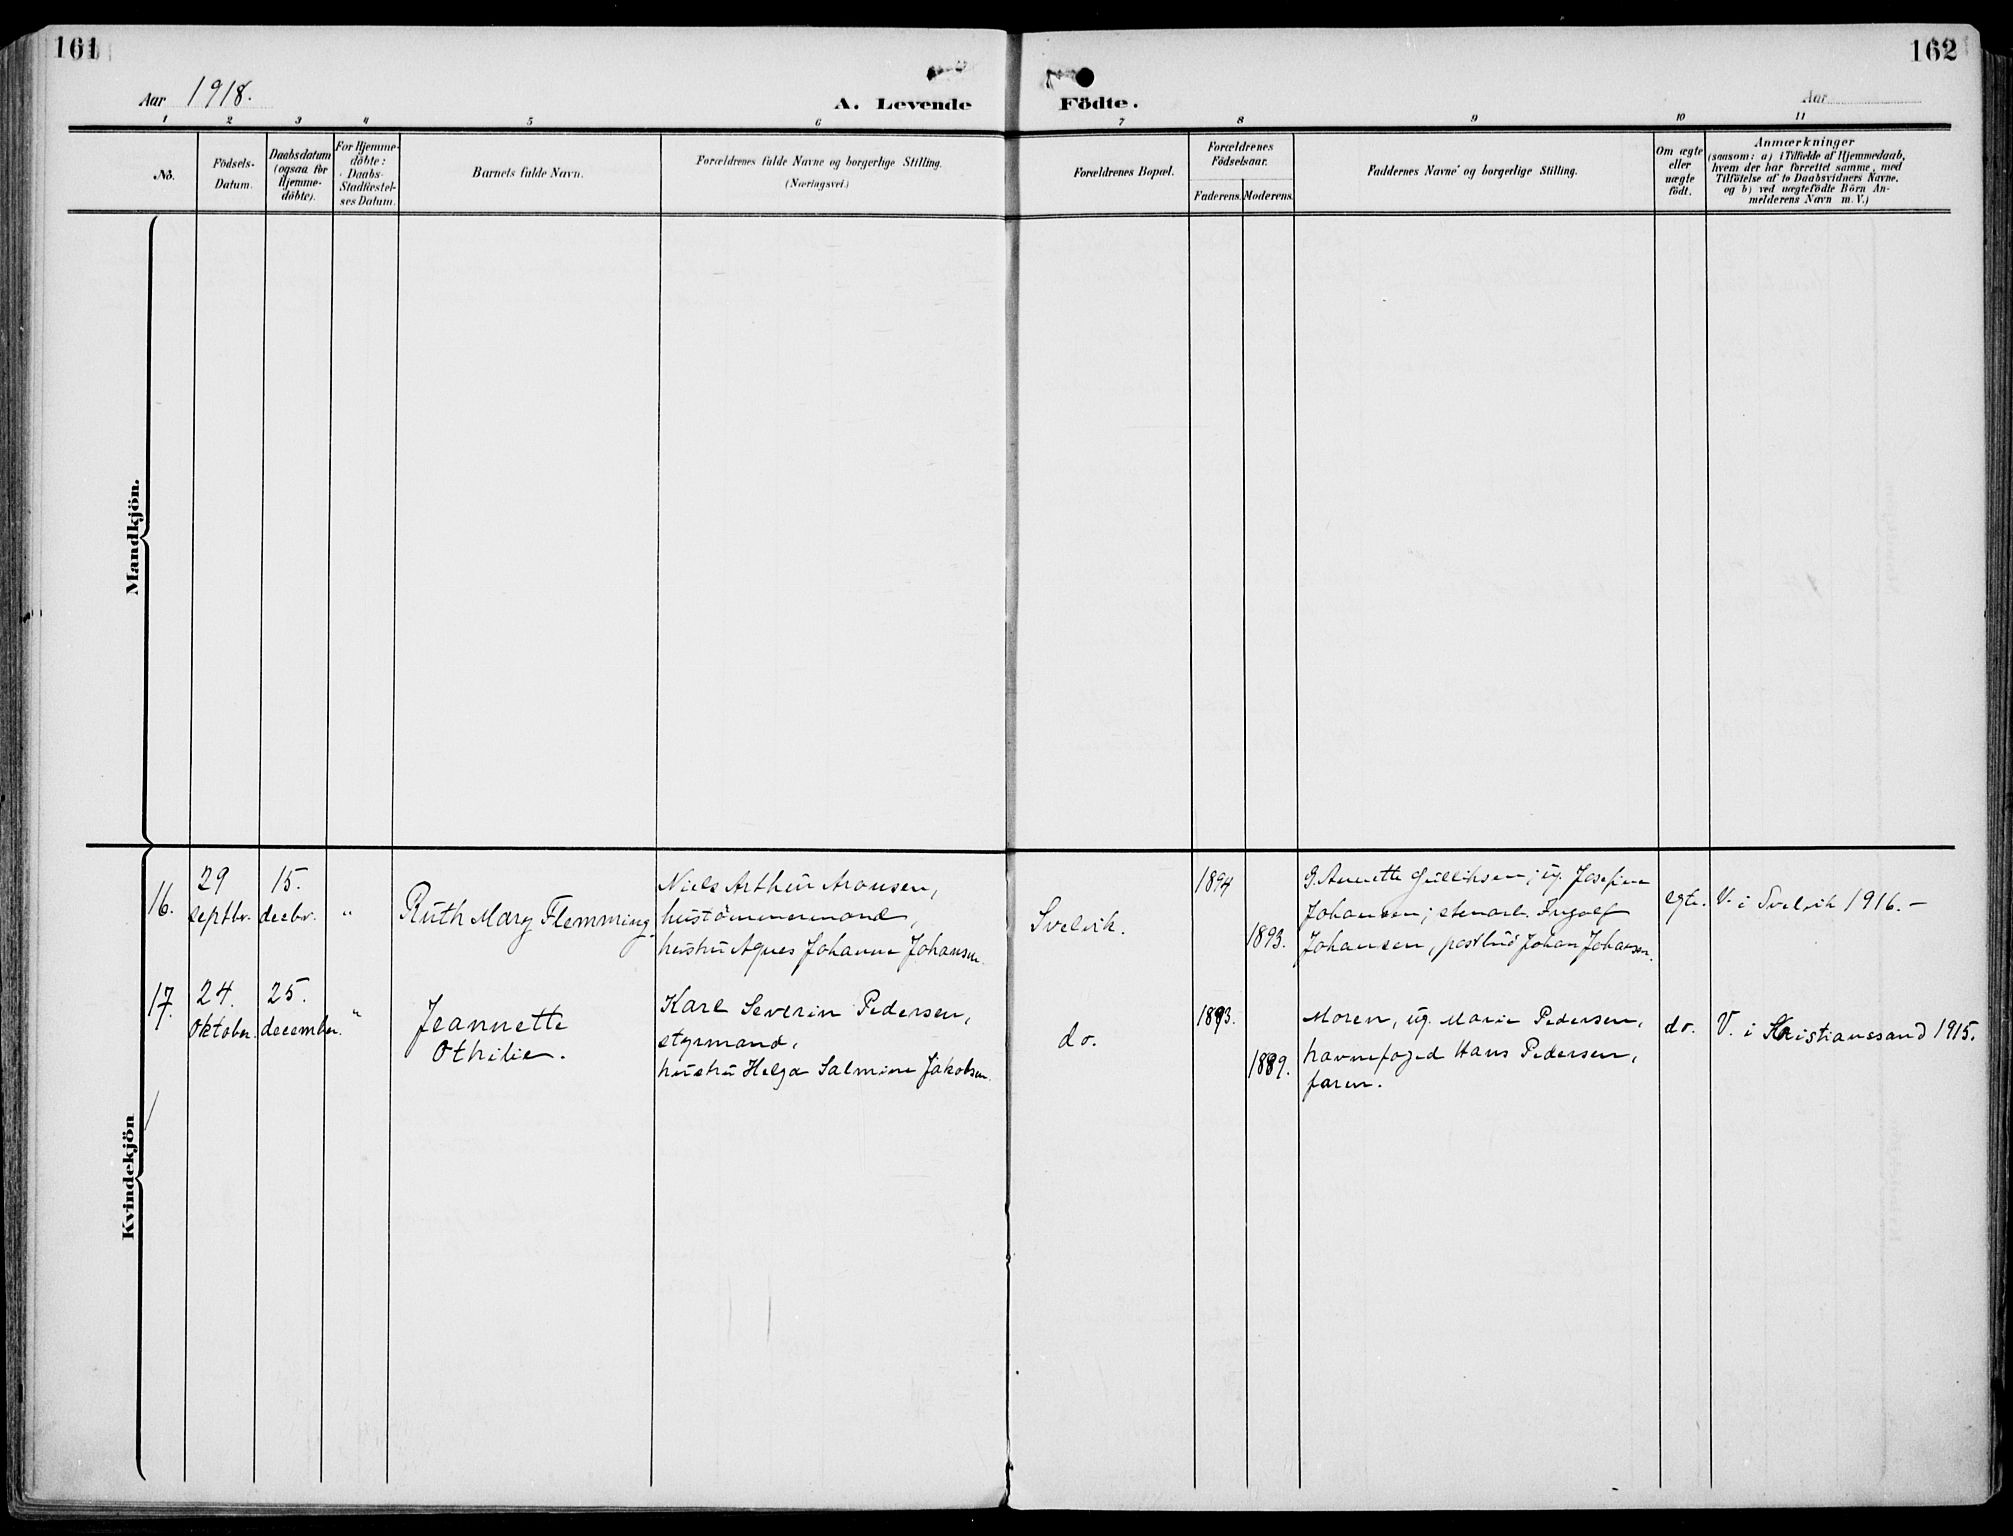 161
162
Aar 1918.
A. Levende Födte.
Aar
1 2 3 4 5 6 7 8 9 10 11
Nô.
Födsels-
Datum.
Daabsdatum
(ogsaa for
Hjemme-
döbte).
For Hjemme-
döbte:
Daabs-
Stadfæstel-
ses Datum.
Barnets fulde Navn.
Forældrenes fulde Navne og borgerlige Stilling.
(Næringsvei.)
Forældrenes Bopæl.
Forældrenes
Födselsaar.
Faderens. Moderens.
Faddernes Navne og borgerlige Stilling.
Om ægte
eller
uægte
födt.
Anmærkninger
(saasom: a) i Tilfælde af Hjemmedaab,
hvem der har forrettet samme, med
Tilföielse af to Daabsvidners Navne.
og b) ved uægtefödte Börn An-
melderens Navn m. V.)
Mandkjön.
Kvindekjön
16.
29
septbr.
15.
decbr.
"
Ruth Mary Flemming.
Niels Arthur Aronsen,
hustömmermand,
hustru Agnes Johanne Johansen.
Svelvik.
1894
1893.
G. Annette Gulliksen; ug. Josefine
Johansen; stenarb. Ingolf
Johansen, postbud Johan Johansen.
egte.
V. i Svelvik 1916. –
17.
24.
oktober.
25.
december.
"
Jeannette
Othilie.
Karl Severin Pedersen,
styrmand,
hustru Helga Salmine Jakobsen.
do.
1893.
1889.
Moren, ug. Marie Pedersen,
havnefoged Hans Pedersen,
faren.
do.
V. i Kristianssand 1915.